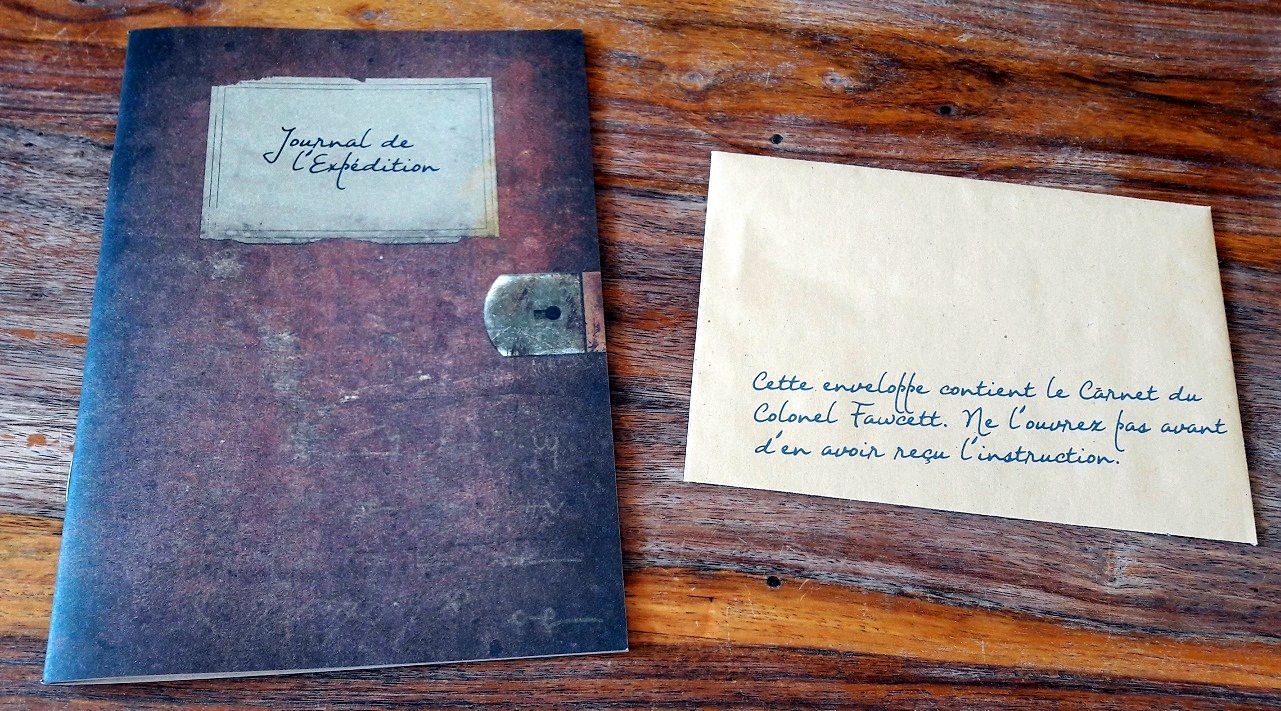 Journal de
l'Expédition
Cette enveloppe contient le Carnet du
Colonel Fawcett. Ne l'ouvrez pas avant
d'en avoir reçu l'instruction.